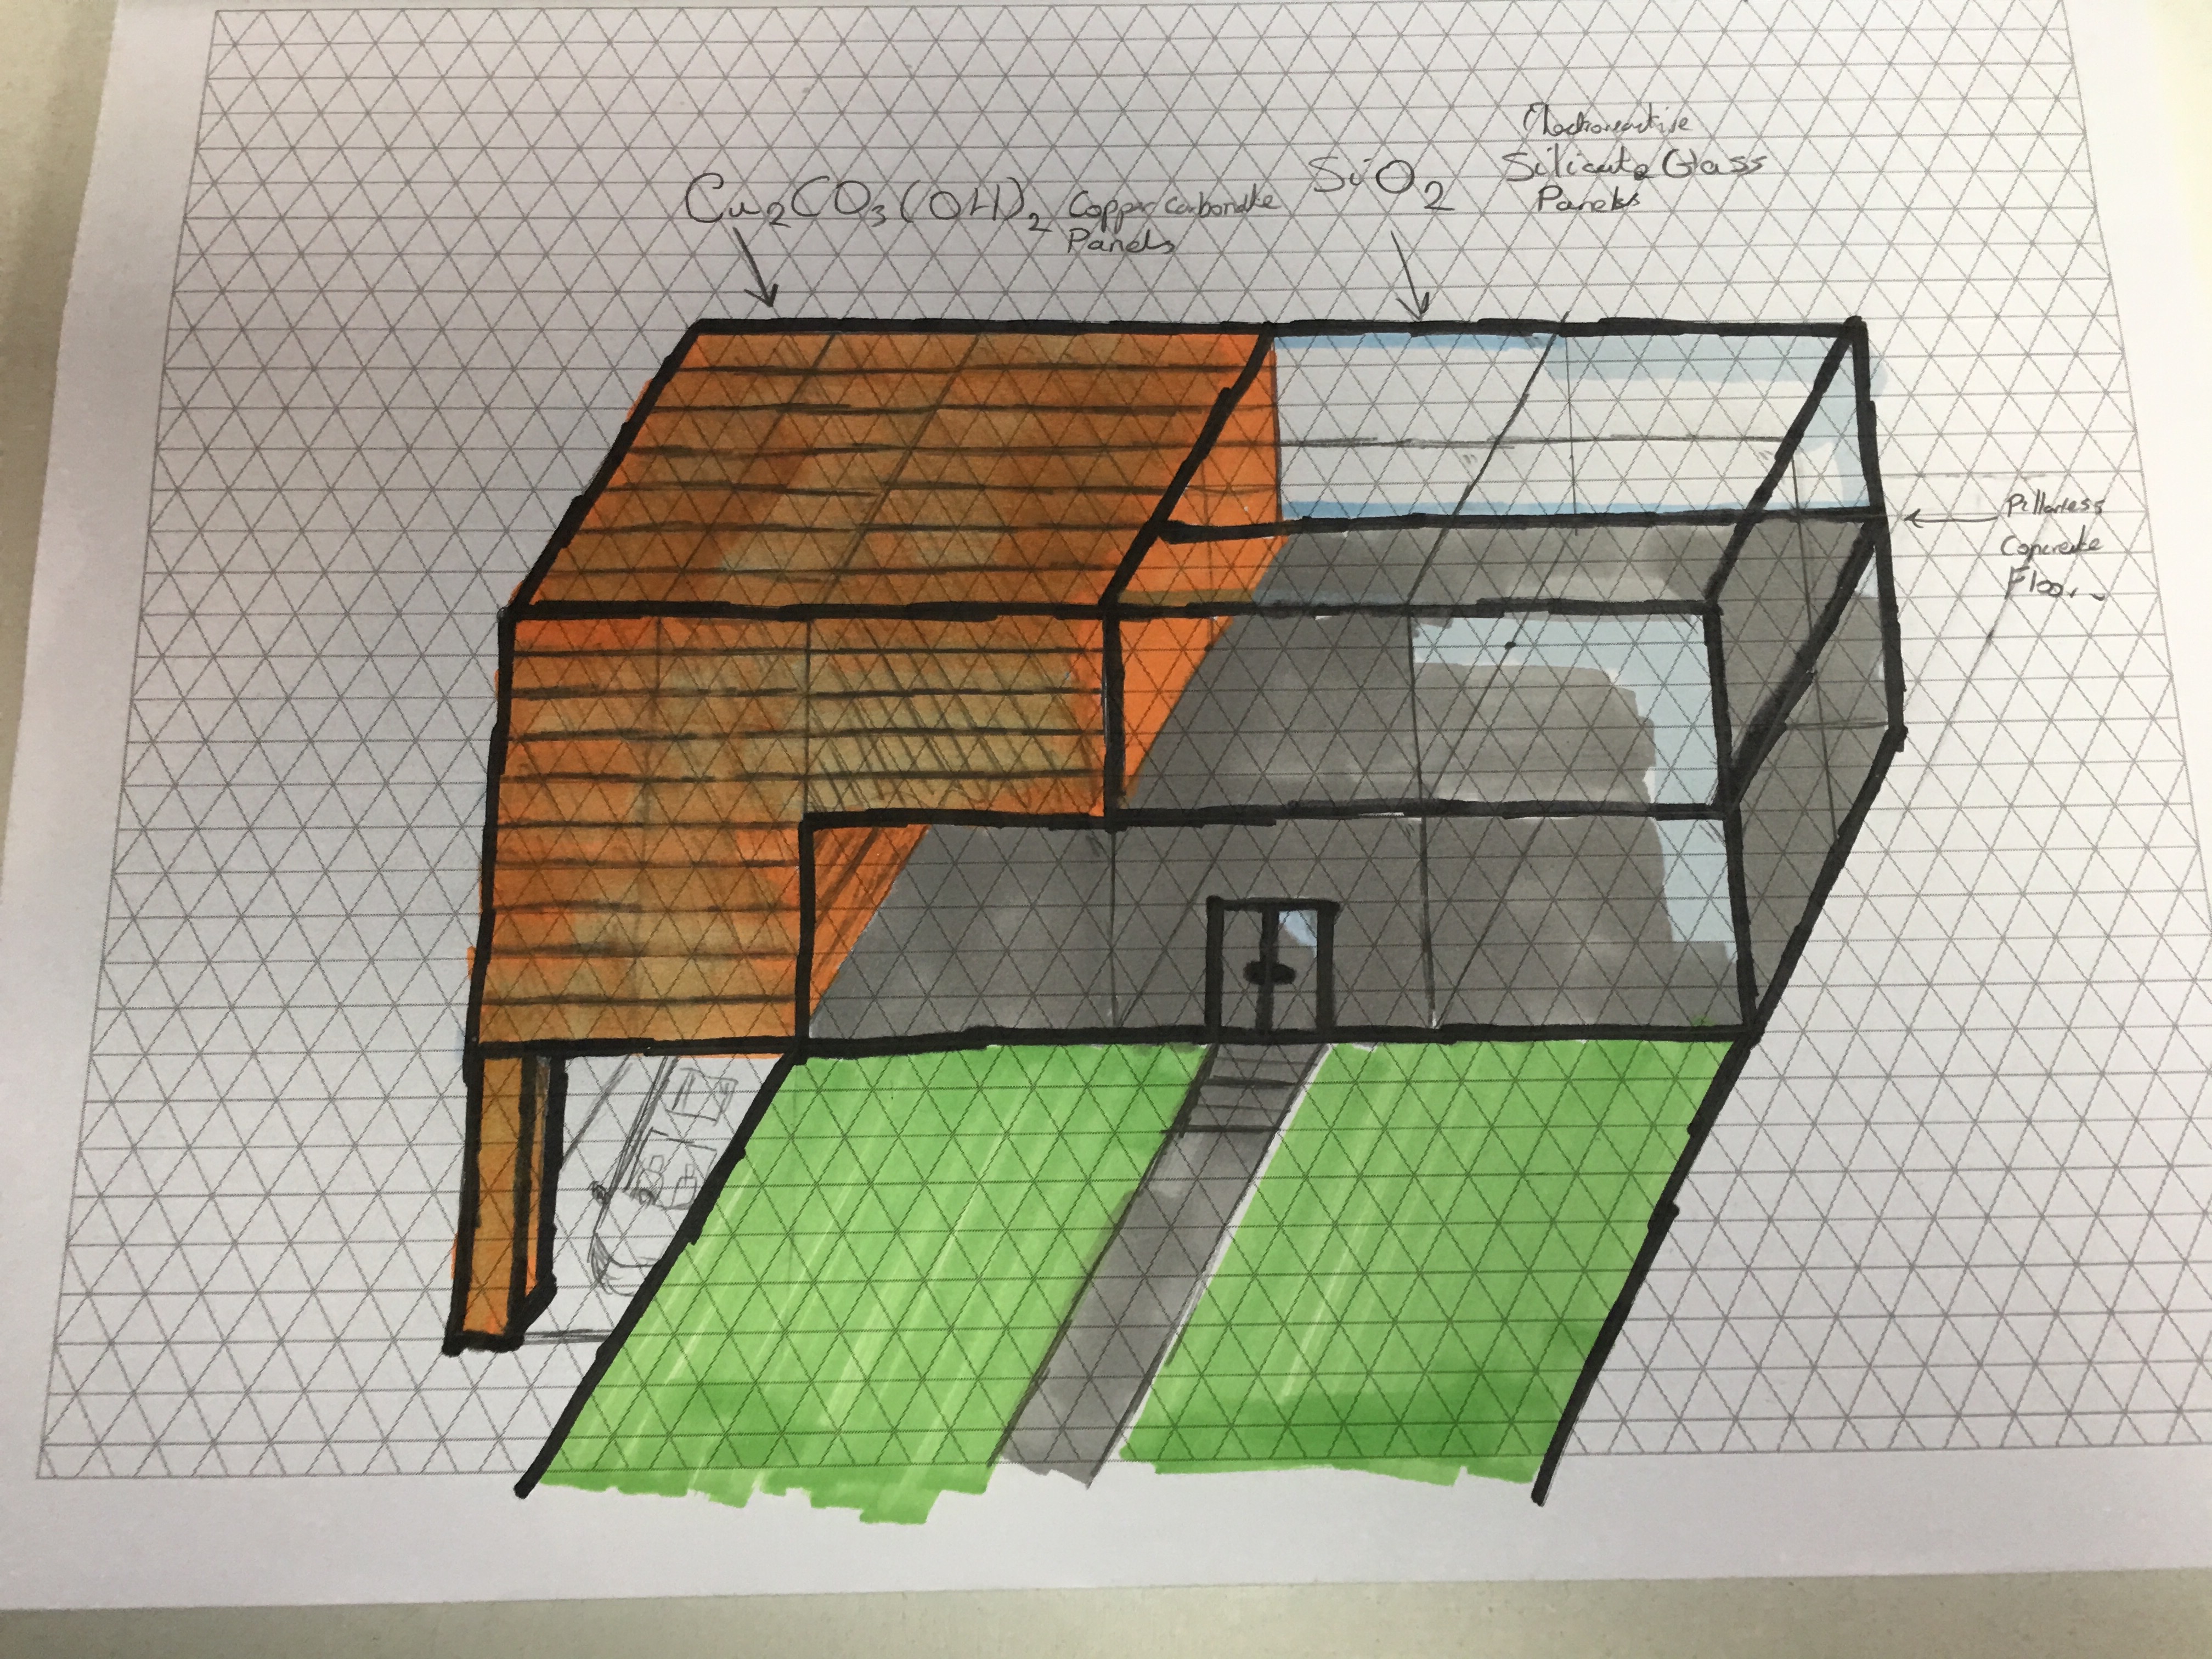 Cu₂CO₃(OH)₂ Copper carbonate
Panels
SiO₂
Silicate Glass
Panels
Pillarless
Concrete
Floor